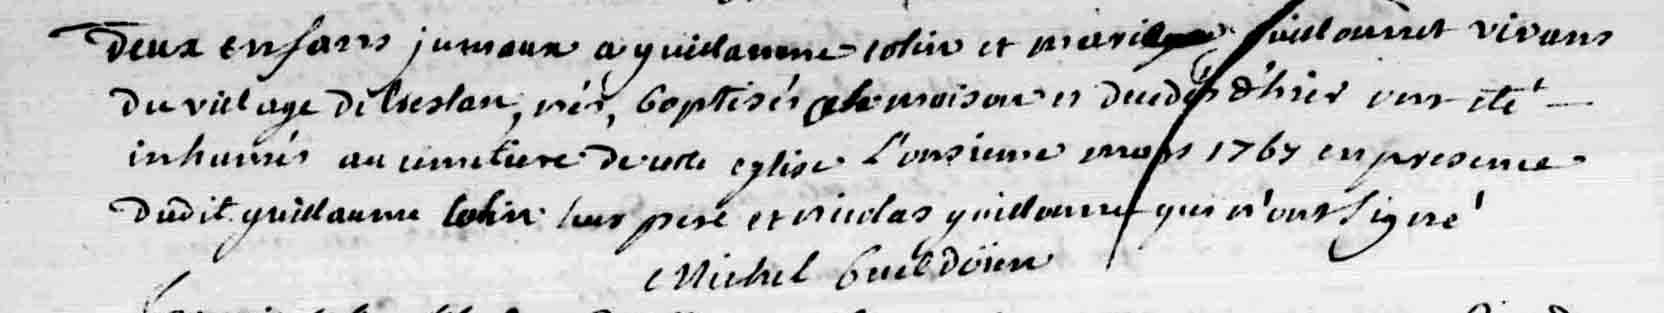 Deux enfans jumeaux a guillaume colin et marie guillouzet vivans
du village de nés, baptisés maison et decedés d'hier ont été
inhumés au cimetiere de cette eglise l'onzieme mars 1767 en presence
dudit guillaume colin leur pere et nicolas guillaume qui n'ont signé
Michel